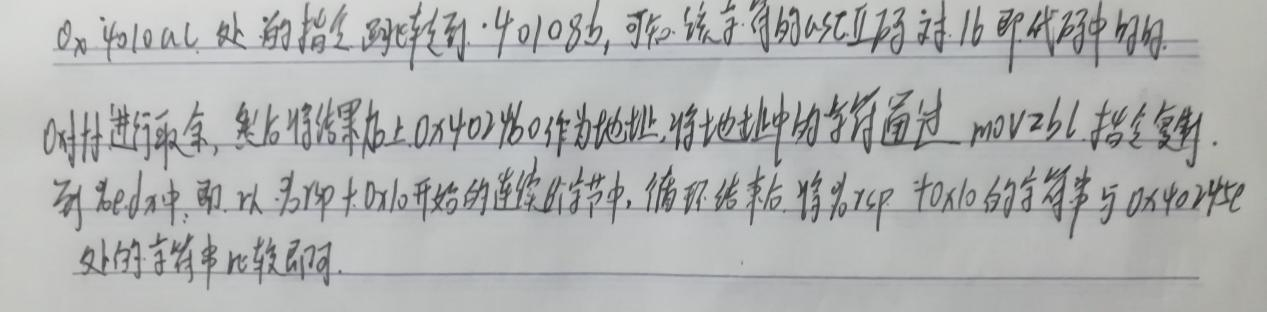 0x4010ac 处的指令跳转到 40108b, 可知该字符的ascII码对16即代码中的的
0xff进行取余, 然后将结果加上0x4024b0作为地址, 将地址中的字符通过 movzbl 指令复制.
到%edx中, 即以%rsp+0x10开始的连续的字节中, 循环结束后将%rsp +0x10的字符串与0x40245e
处的字符串比较即可.